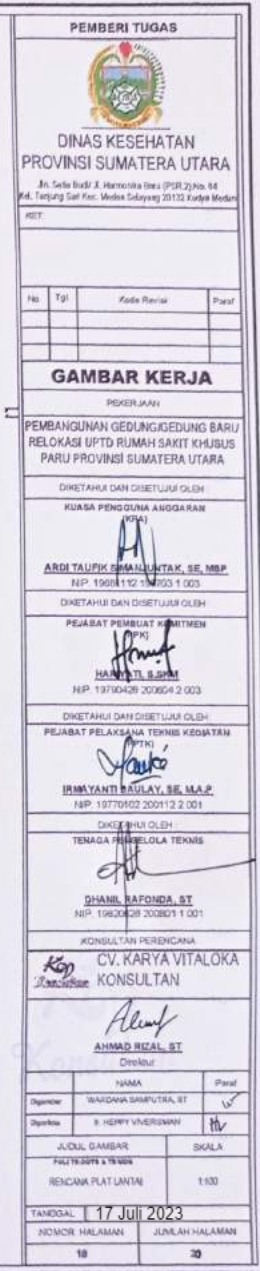 PEMBERI TUGAS
DINAS KESEHATAN
PROVINSI SUMATERA UTARA
Jln. Setia Budi/ Jl. Harmonika Baru (PSR.2) No. 84
Kel. Tanjung Sari Kec. Medan Selayang 20132 Kodya Medan
KET:
No Tgl Kode Revisi Paraf
GAMBAR KERJA
PEKERJAAN
PEMBANGUNAN GEDUNG/GEDUNG BARU
RELOKASI UPTD RUMAH SAKIT KHUSUS
PARU PROVINSI SUMATERA UTARA
DIKETAHUI DAN DISETUJUI OLEH
KUASA PENGGUNA ANGGARAN
(KPA)
ARDI TAUFIK SIMANJUNTAK, SE, MSP
1 003
DIKETAHUI DAN DISETUJUI OLEH
PEJABAT PEMBUAT KOMITMEN
(PPK)
HARYATI, S.SKM
NIP. 19790426 200604 2 003
DIKETAHUI DAN DISETUJUI OLEH
PEJABAT PELAKSANA TEKNIS KEGIATAN
(PPTK)
IRMAYANTI DAULAY, SE, M.A.P
NIP. 19770102 200112 2 001
DIKETAHUI OLEH :
TENAGA PENGELOLA TEKNIS
DHANIL RAFONDA, ST
200801 1 001
KONSULTAN PERENCANA
CV. KARYA VITALOKA
KONSULTAN
AHMAD RIZAL, ST
Direktur
NAMA Paraf
Digambar WARDANA SAMPUTRA, ST
Diperiksa Ir. HEPPY VIVERISMAN
JUDUL GAMBAR SKALA
RENCANA PLAT LANTAI 1:100
TANGGAL 17 Juli 2023
NOMOR HALAMAN JUMLAH HALAMAN
18 20